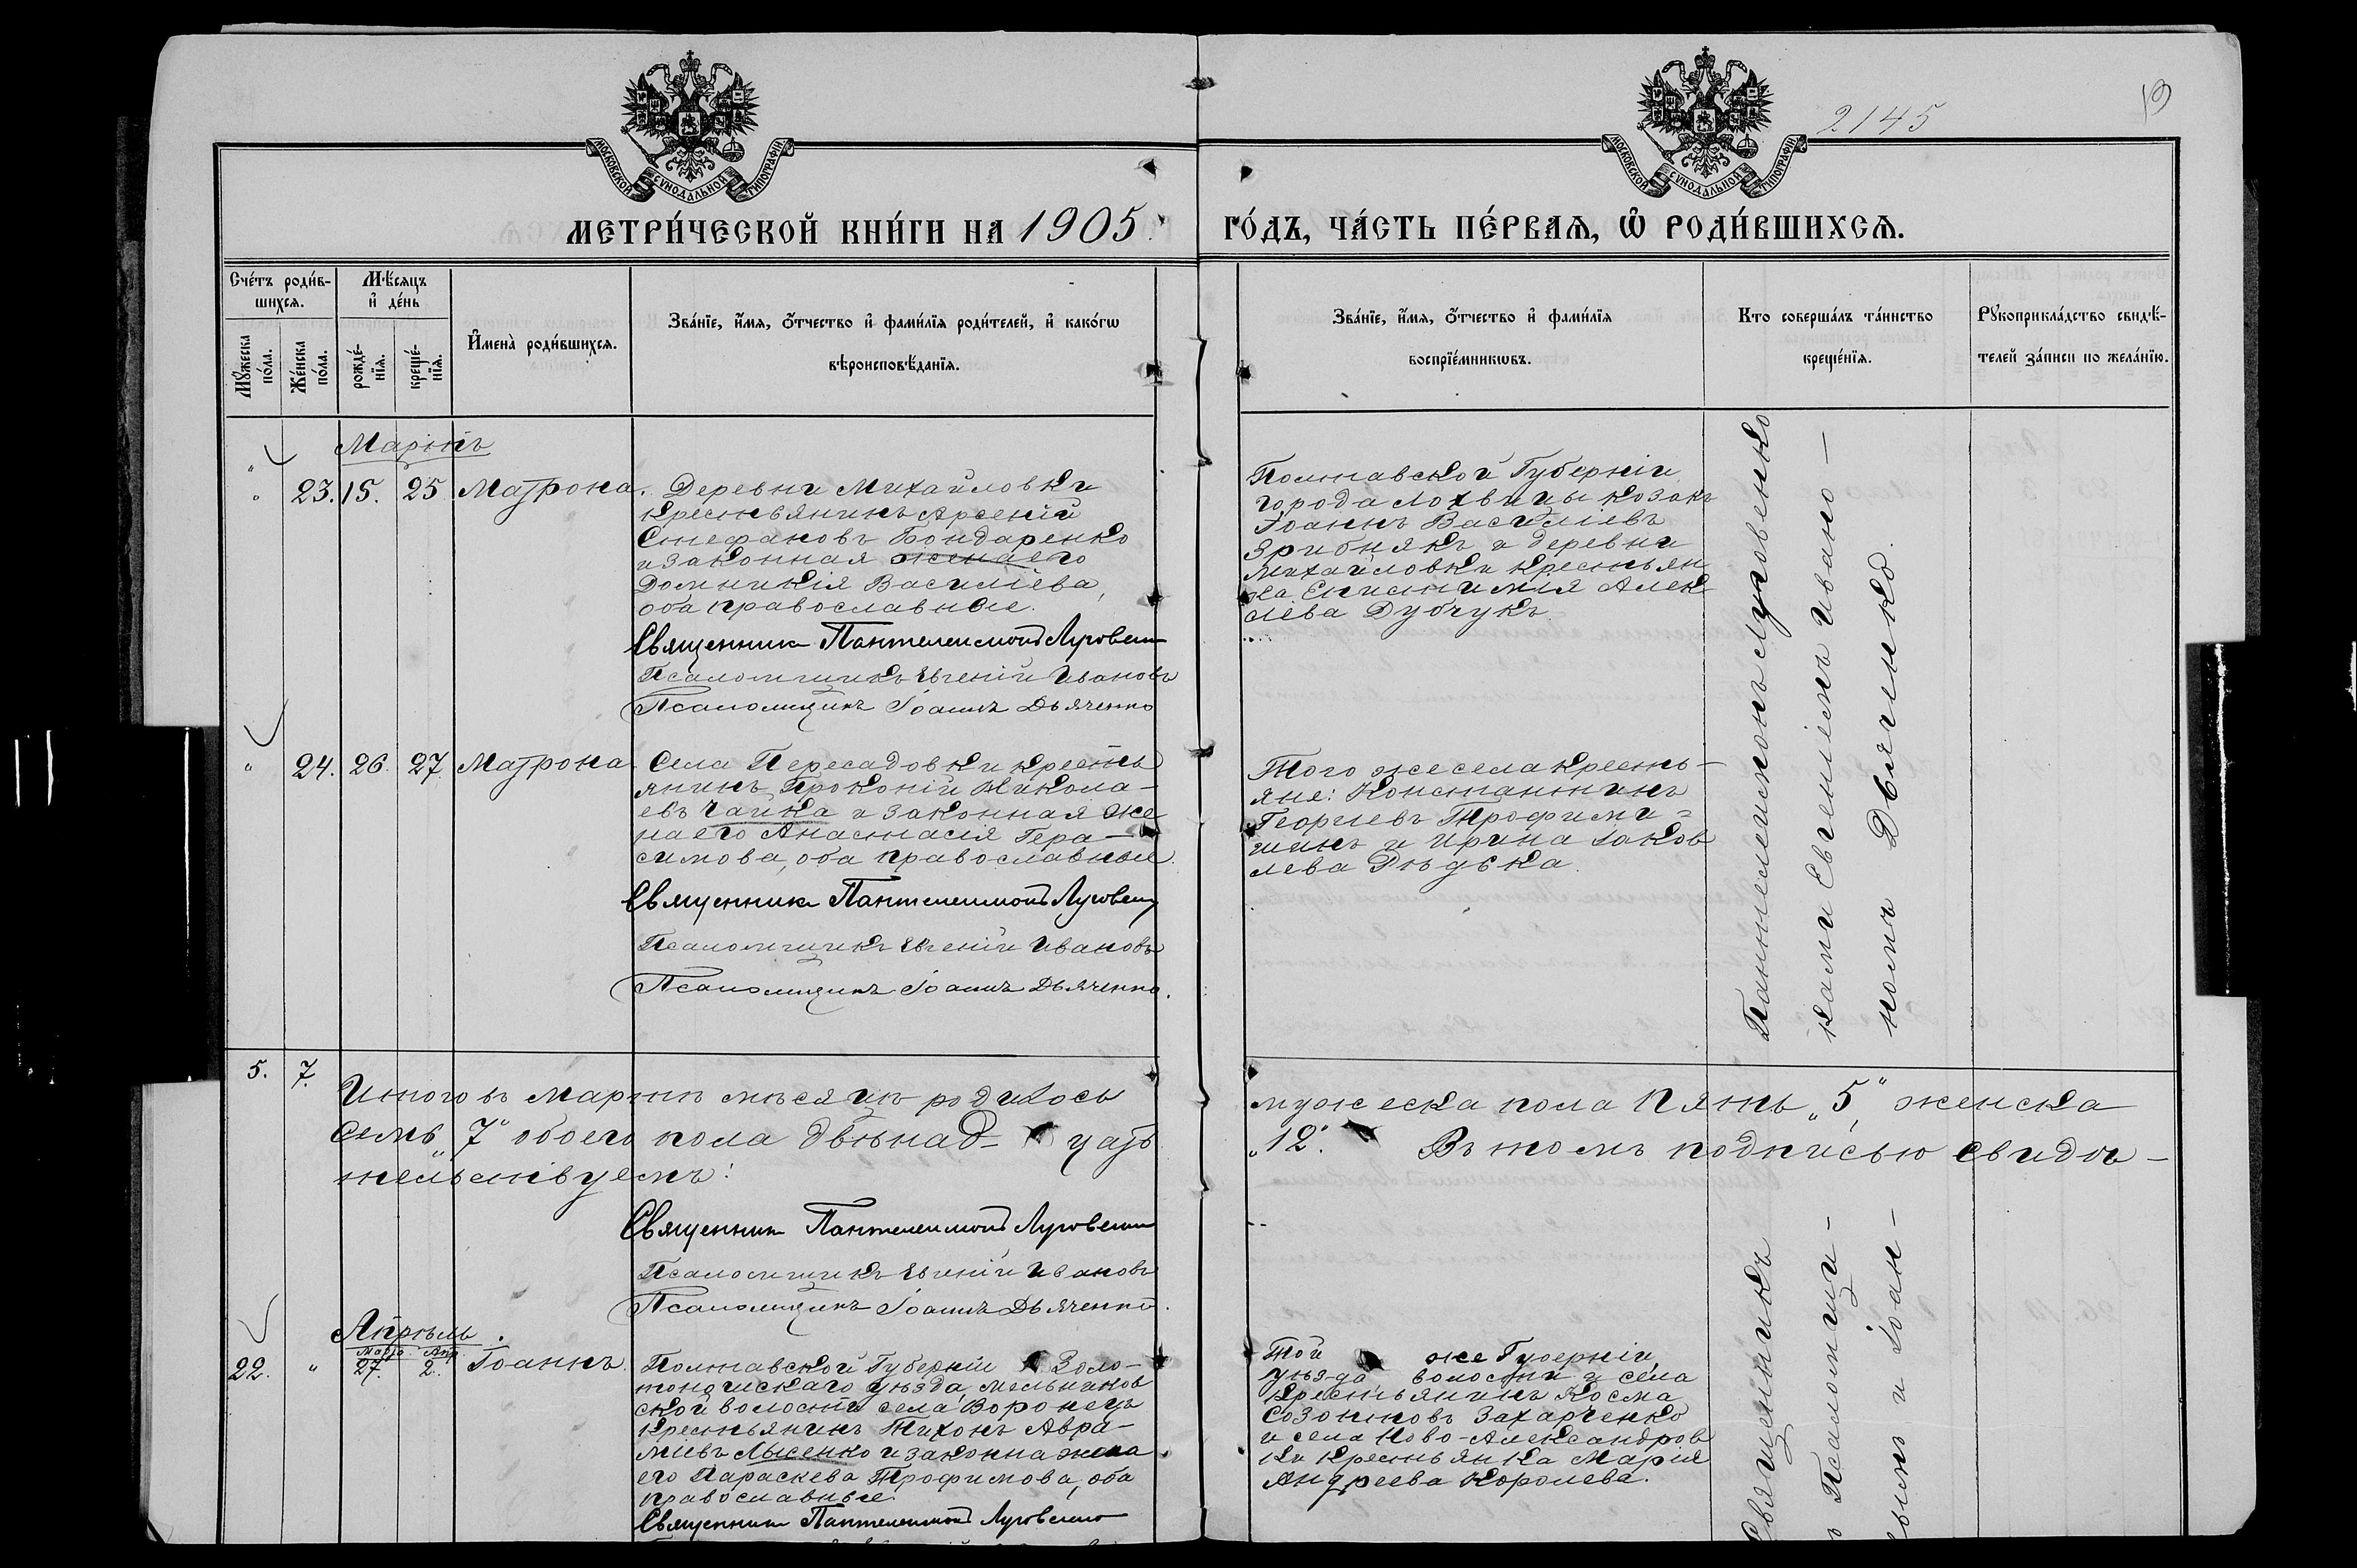 2145
МОСКОВСКОЙ СѴНОДАЛЬНОЙ ТИПОГРАФІИ
МОСКОВСКОЙ СѴНОДАЛЬНОЙ ТИПОГРАФІИ
МЕТРИ́ЧЕСКОЙ КНИ́ГИ НА 1905
ГО́ДЪ, ЧА́СТЬ ПЕ́РВАѦ, Ѽ РОДИ́ВШИХСѦ.
Сче́тъ роди́в-
шихсѧ.
Мꙋжеска по́ла.
Же́нска по́ла.
Мѣ́сѧцъ
и҆ де́нь
рожде́-
нїѧ.
креще́-
нїѧ.
И҆мена̀ роди́вшихсѧ.
Зва́нїе, и҆́мѧ, ѻ҆́тчество и҆ фами́лїѧ роди́телей, и҆ како́гѡ
вѣроисповѣ́данїѧ.
Зва́нїе, и҆́мѧ, ѻ҆́тчество и҆ фами́лїѧ
воспрїе́мникѡвъ.
Кто соверша́лъ та́инство
креще́нїѧ.
Рꙋкоприкла́дство свидѣ́-
телей за́писи по жела́нїю.
Мартъ
23. 15. 25 Матрона.
Деревни Михайловки
крестьянинъ Арсеній
Стефановъ Бондаренко
и законная жена его
Домникія Василіева,
оба православные.
Священникъ Пантелеимонъ Луговен
Псаломщикъ Евгеній Ивановъ
Псаломщикъ Іоаннъ Дьяченко
Полтавской Губерніи
города Лохвицы козакъ
Іоаннъ Василіевъ
Зрибнякъ и деревни
Михайловки крестьян
ка Епистимія Алек
сіева Дубчукъ
24. 26. 27 Матрона
Села Пересадовки кресть
янинъ Прокопій Никола-
евъ Чайка и законная же
на его Анастасія Гера-
симова, оба православные.
Священникъ Пантелеимонъ Луговен
Псаломщикъ Евгеній Ивановъ
Псаломщикъ Іоаннъ Дьяченко.
Того же села кресть-
яне: Константинъ
Георгіевъ Трофими-
шинъ и Ирина Іаков
лева
Пантелеимонъ Луговенко
ками Евгеніемъ Ивано-
номъ Дьяченко.
5. 7.
Итого въ мартѣ мѣсяцѣ родилось
мужеска пола пять „5" женска
семь „7" обоего пола двѣнад- цать
„12". Въ томъ подписью свидѣ-
тельствуемъ:
Священникъ Пантелеимонъ Луговен
Псаломщикъ Евгеній Ивановъ
Псаломщикъ Іоаннъ Дьяченко.
Апрѣль.
Марта Апр.
22. 27. 2. Іоаннъ.
Полтавской Губерніи Золо-
тоношскаго уѣзда, Мельников
ской волости села Воронецъ
крестьянинъ Тихонъ Авра-
міевъ Лысенко и законна жена
его Параскева Трофимова, оба
православные.
Священникъ Пантелеимонъ Луговенко
Той же Губерніи,
уѣзда волости и села
крестьянинъ Косма
Созонтовъ Захарченко
и села Ново-Александров
ки крестьянка Марія
Андреева Королева.
Священникъ
Псаломщи-
вымъ и Іоан-